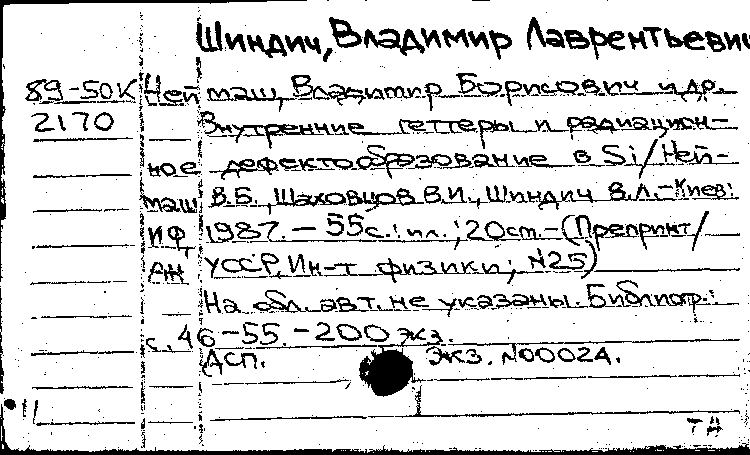 Шиндич, Владимир Лаврентьевич
89-50К Неймаш, Владимир Борисович и др.
2170 Внутренние геттеры и радиацион-
ное дефектообразование в Si/Ней-
маш В.Б., Шаховцов В.И., Шиндич В.Л.-Киев:
ИФ, 1987.-55с.:ил.;20см.-(Препринт/
АН УССР, Ин-т физики; №25)
На обл. авт. не указаны. Библиогр.:
с. 46-55.-200 экз.
ДСП. Экз. №00024.